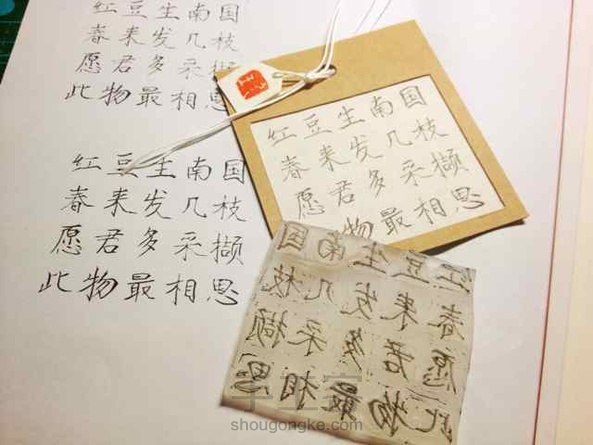 红豆生南国
春来发几枝
愿君多采撷
此物最相思
红豆生南国
春来发几枝
愿君多采撷
此物最相思
红豆生南国
春来发几枝
愿君多采撷
物最相思
红豆生南国
春来发几枝
愿君多采撷
此物最相思
手工客
shougongke.com